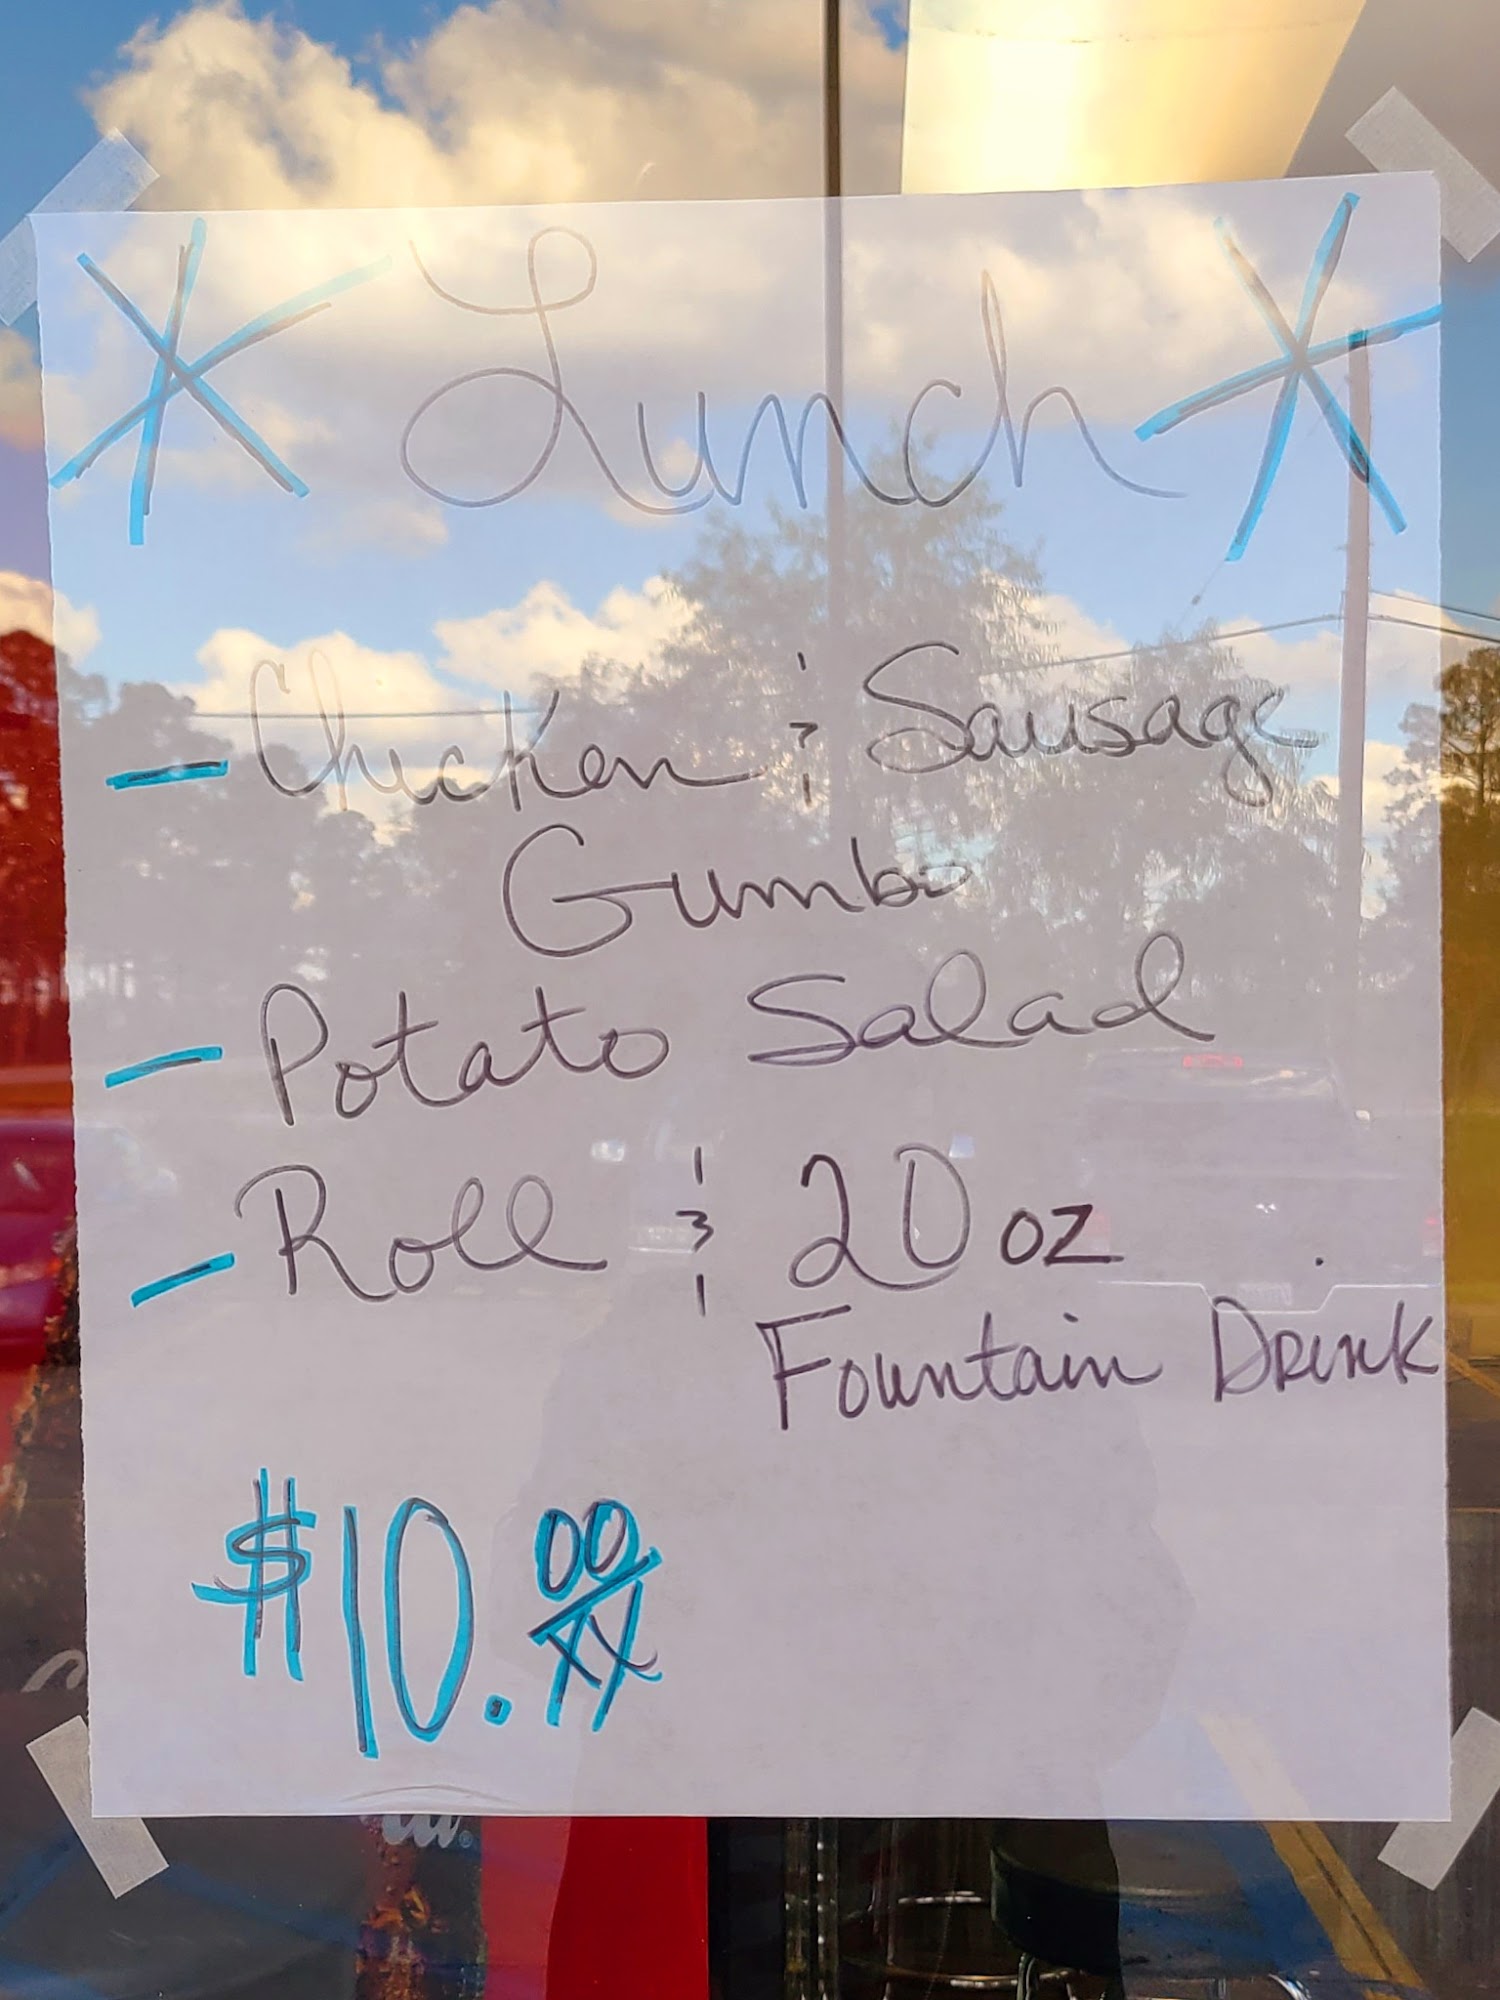 * Lunch *
- Chicken & Sausage
Gumbo
- Potato Salad
- Roll & 20 oz
Fountain Drink
$10.00/XX